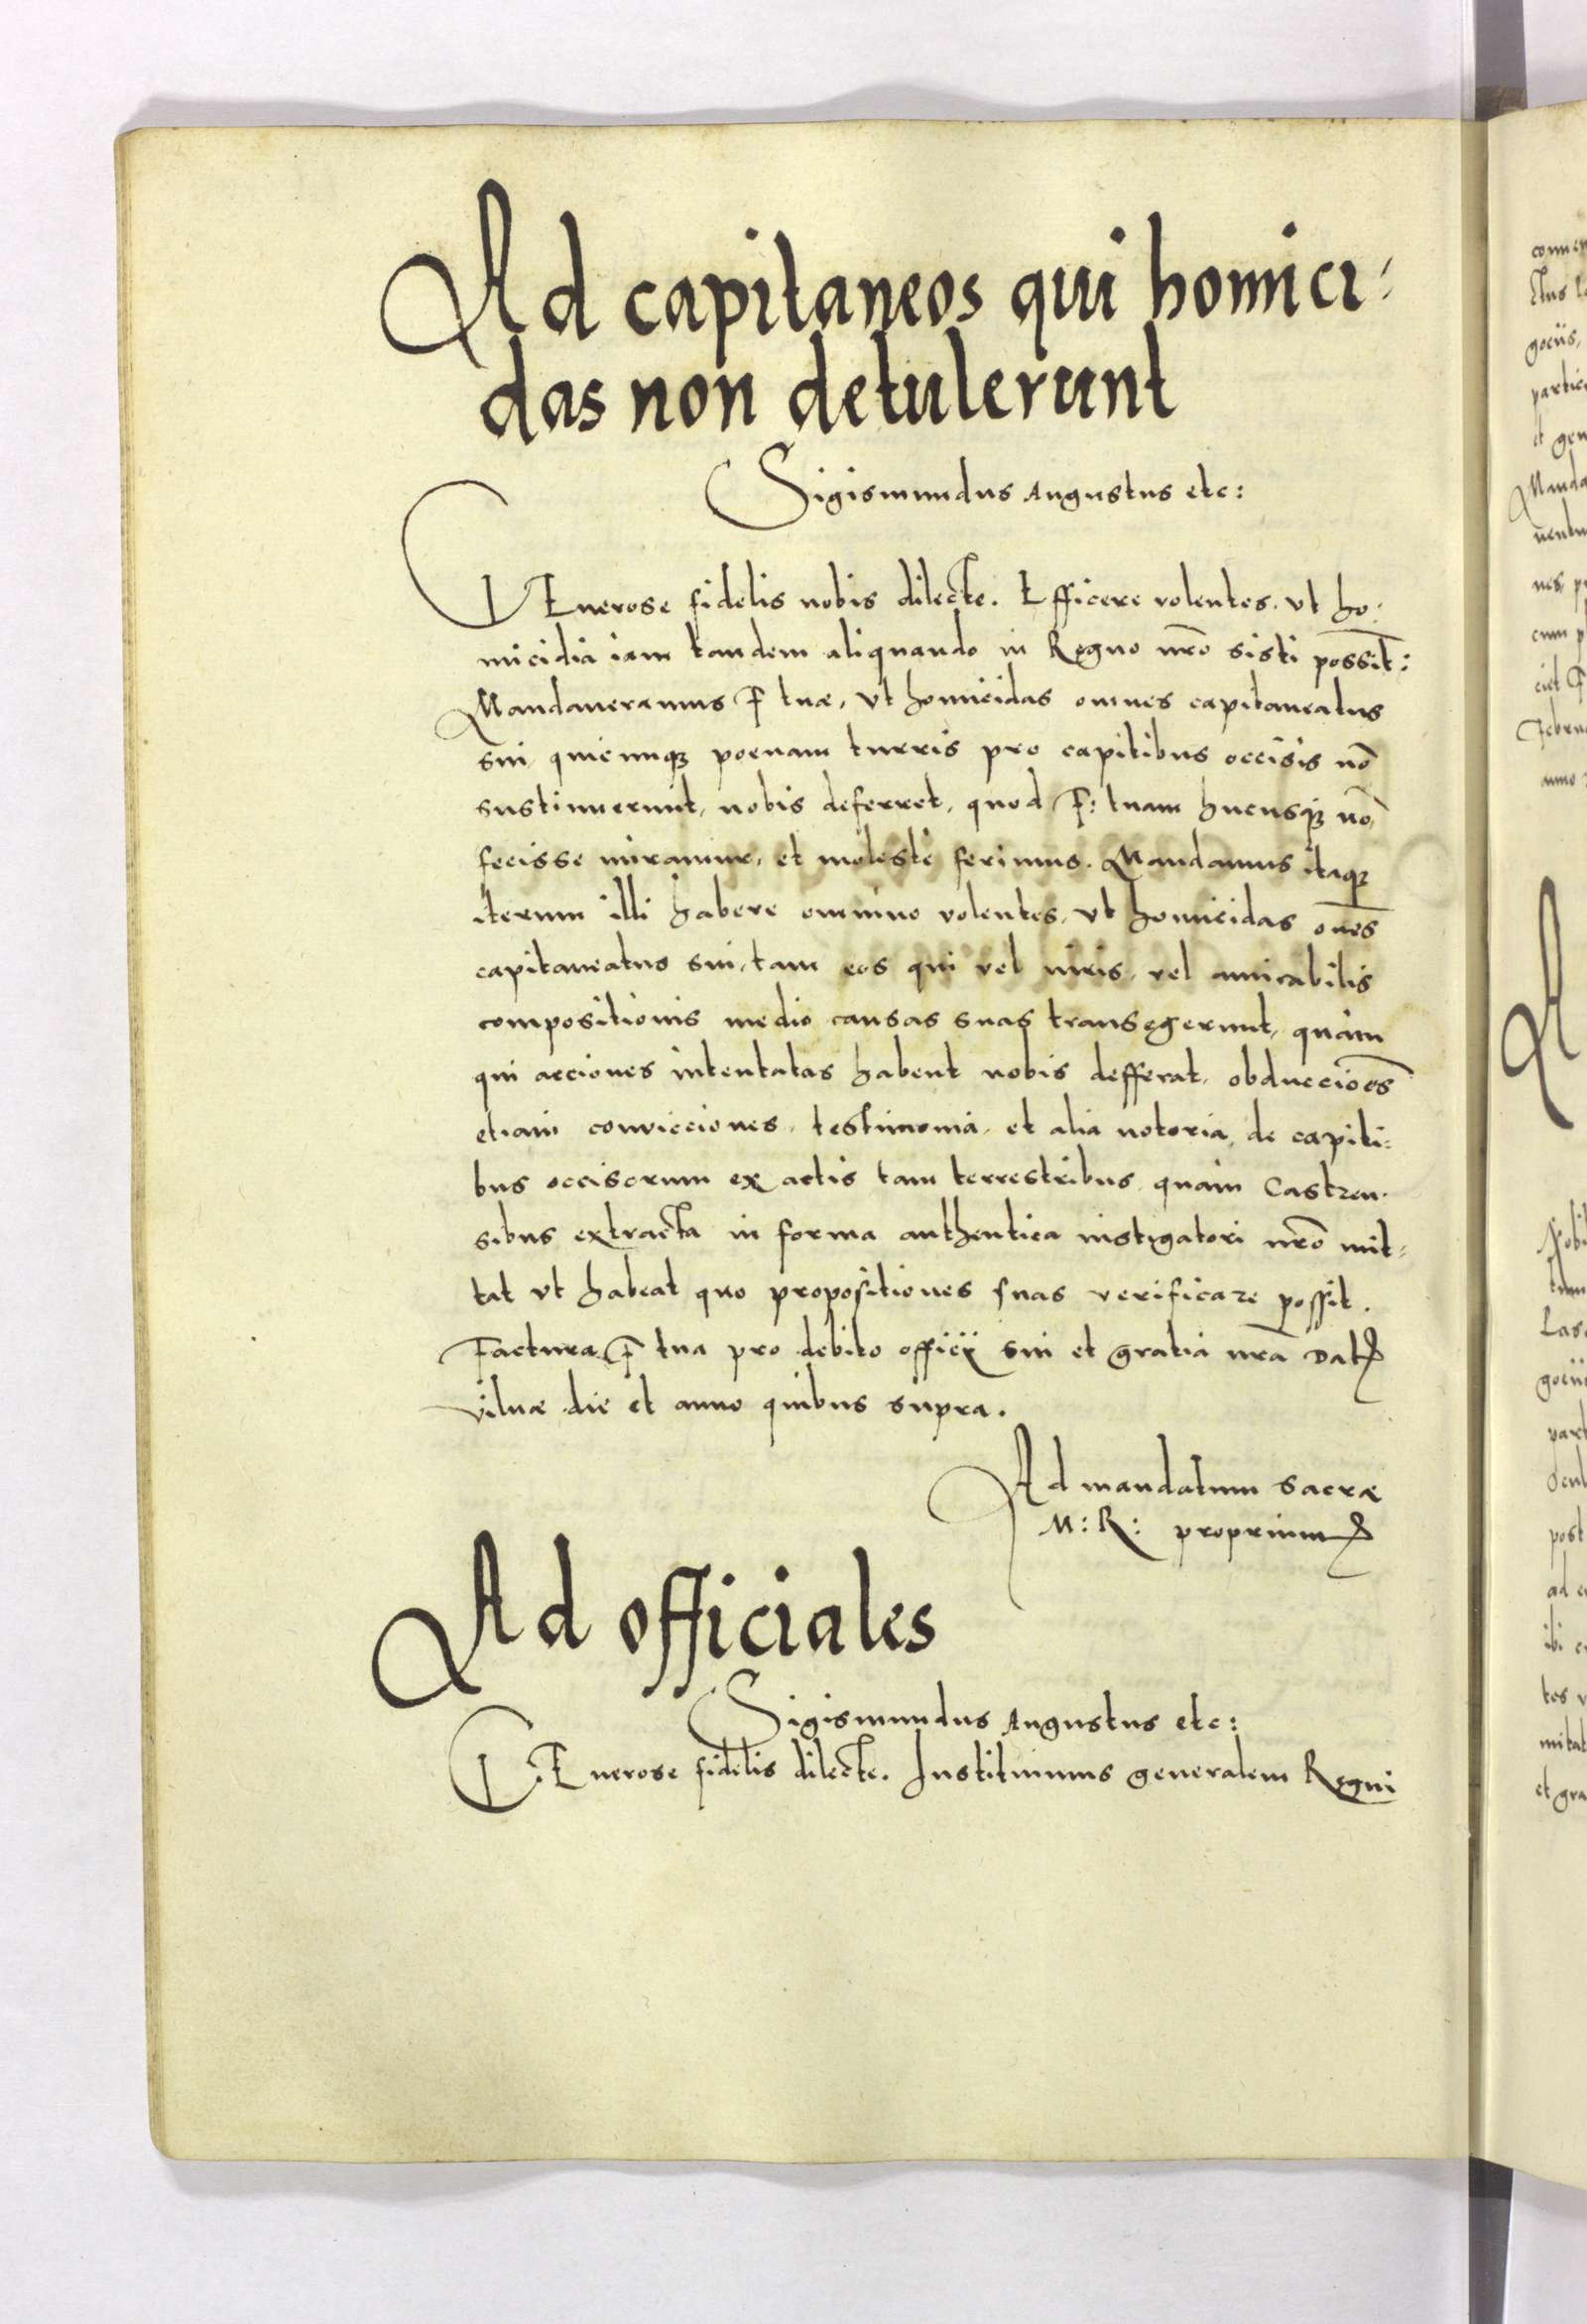 Ad capitaneos qui homici-
das non detulerunt
Sigismundus Augustus etc:
GEnerose fidelis nobis dilecte. Efficere volentes, ut ho-
micidia iam tandem aliquando in Regno nr̄o sisti possint:
Mandaveramus F tuæ, ut homicidas omnes capitaneatus
sui, quicunqꝫ poenam turris pro capitibus occisis nō
sustinuerunt, nobis deferret, quod F: tuam hucusqꝫ nō
fecisse miramur, et molestè ferimus. Mandamus itaqꝫ
iterum illi habere omnino volentes, ut homicidas oēs
capitaneatus sui, tam eos qui vel iuris, vel amicabilis
compositionis medio causas suas transegerunt, quàm
qui acciones intentatas habent nobis defferat, obduccioēs
etiam convicciones, testimonia, et alia notoria, de capiti-
bus occisorum ex actis tam terrestribus quàm Castren-
sibus extracta in forma authentica instigatori nr̄o mit-
tat ut habeat quo propositiones suas verificare possit.
Factura F tua pro debito officij sui et gratia nr̄a Dat̄
Vilnæ die et anno quibus supra.
Ad mandatum sacræ
M: R: proprium
Ad officiales
Sigismundus Augustus etc:
GEnerose fidelis dilecte. Instituimus generalem Regni